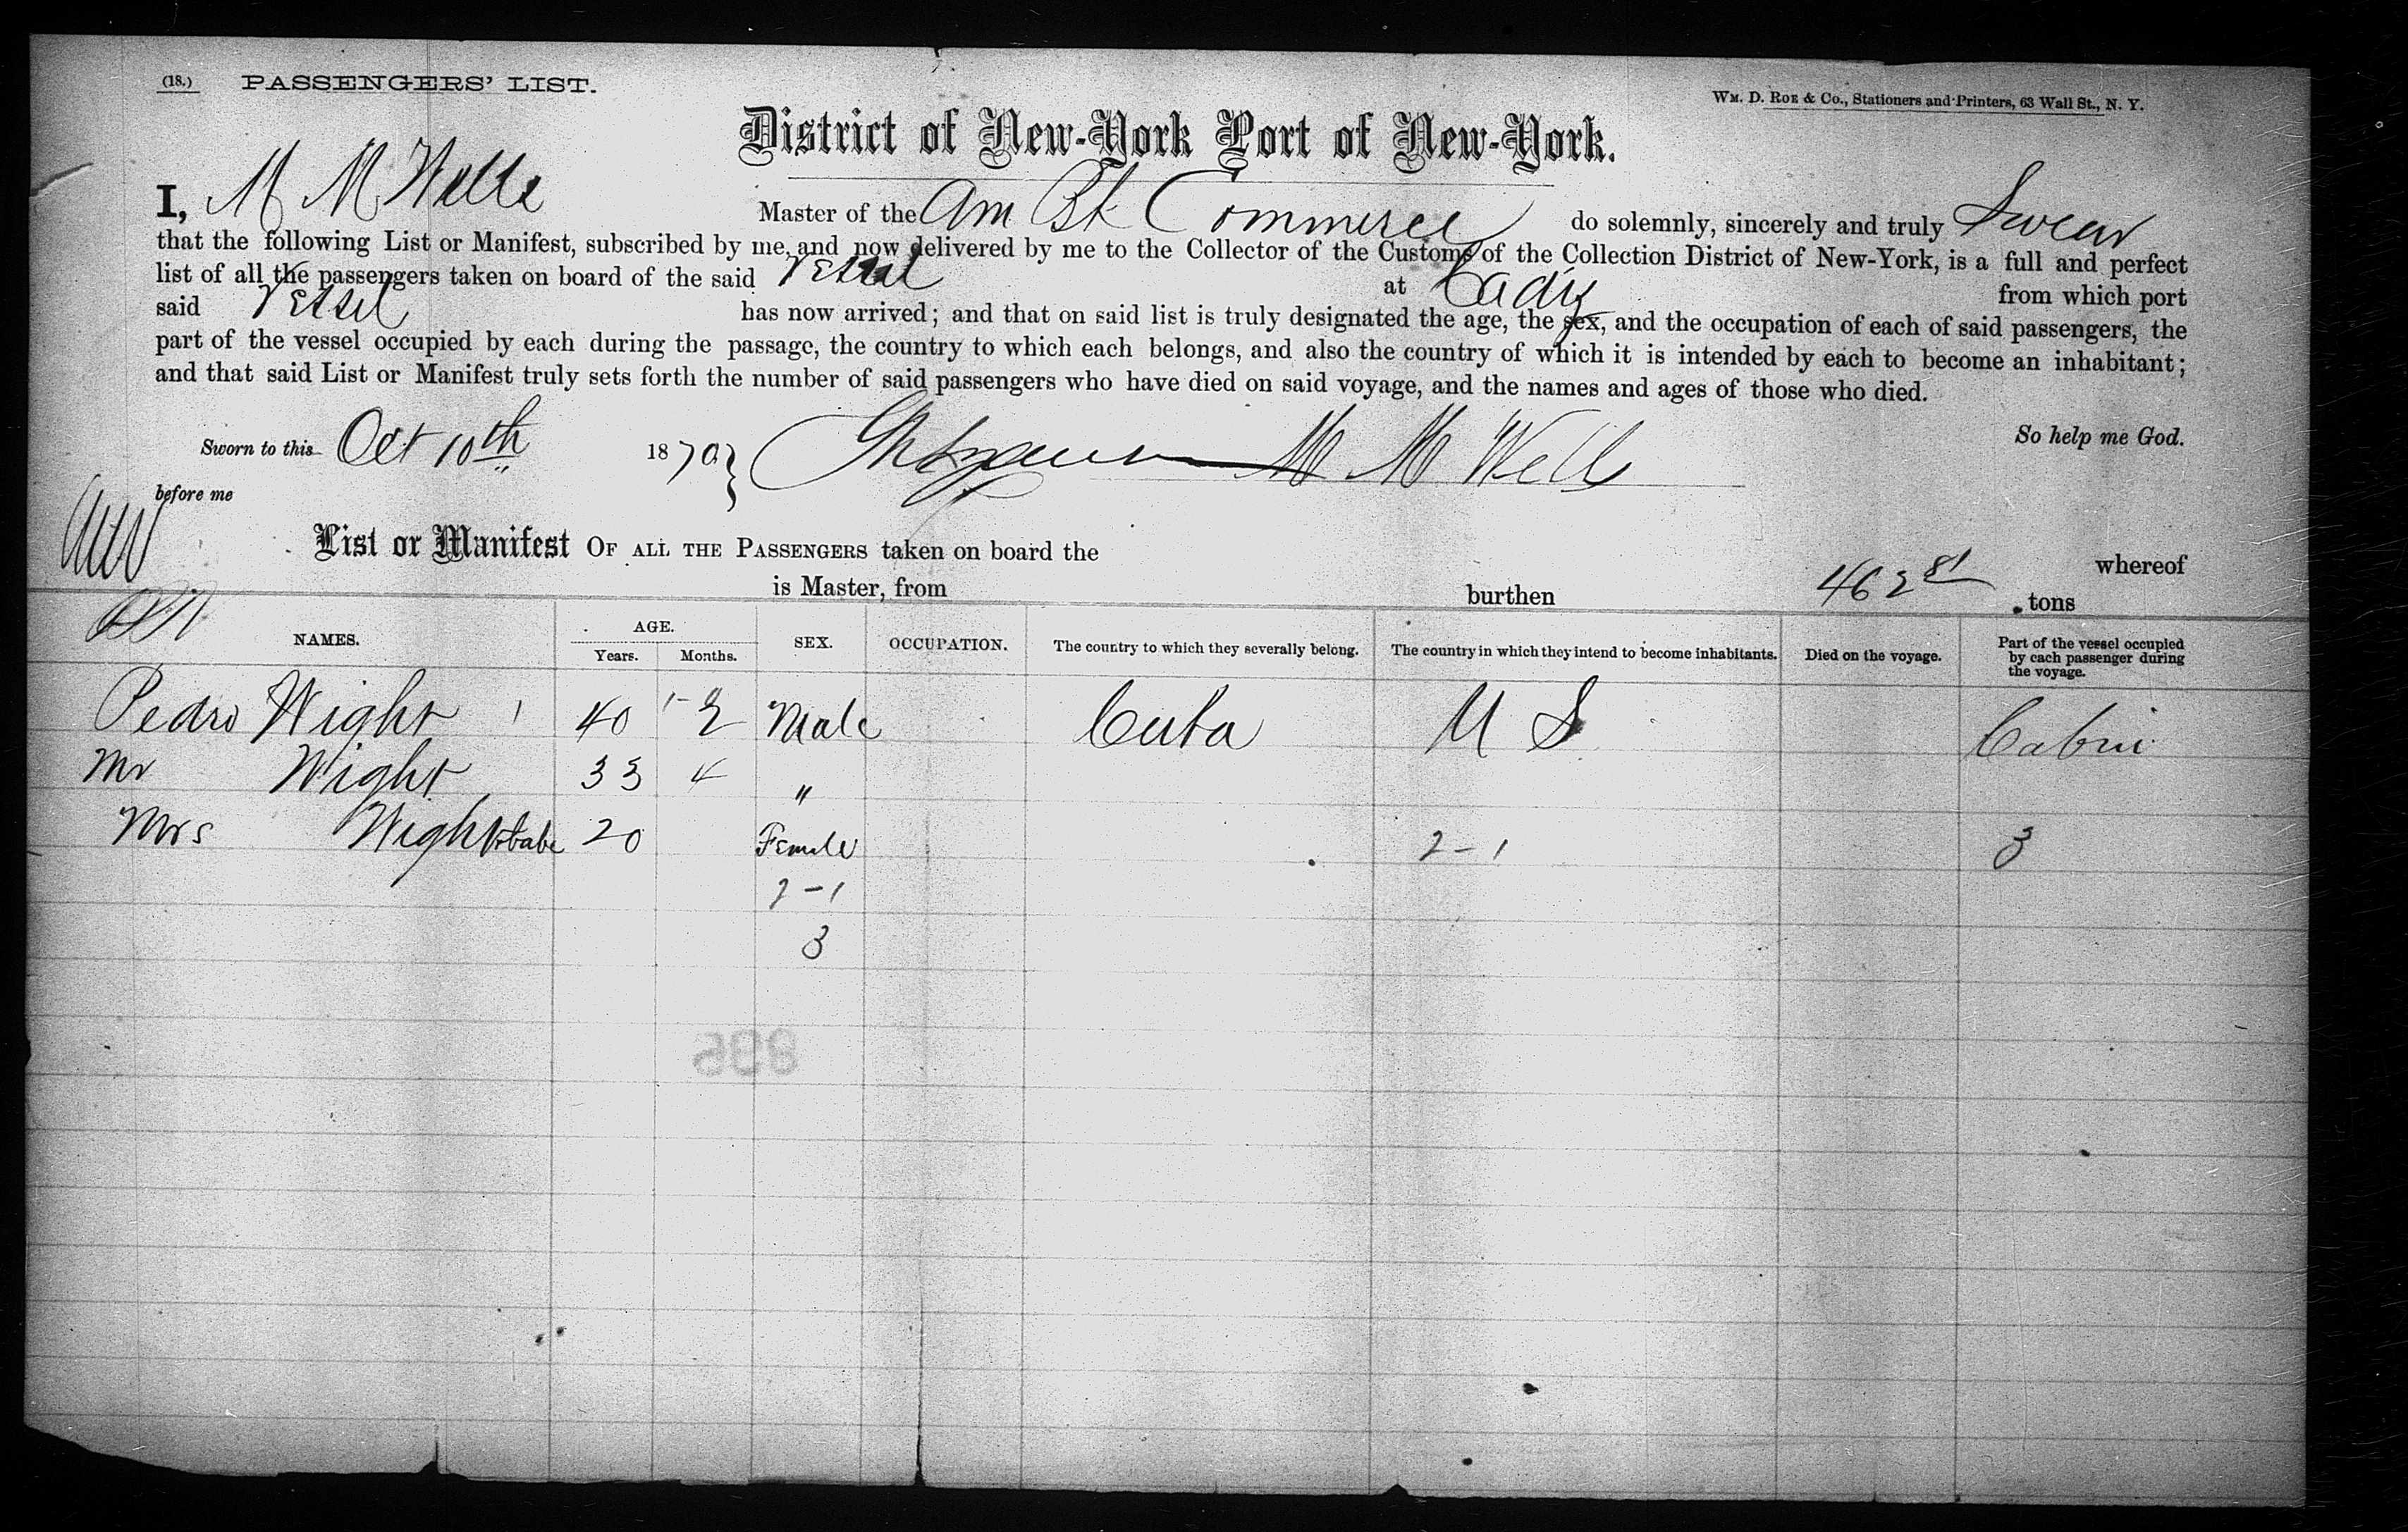 (18.) PASSENGERS' LIST.
Wm. D. Roe & Co., Stationers and Printers, 63 Wall St., N. Y.
District of New-York Port of New-York.
I, M M Wells Master of the Am Bk Commerce do solemnly, sincerely and truly Swear
that the following List or Manifest, subscribed by me, and now delivered by me to the Collector of the Customs of the Collection District of New-York, is a full and perfect
list of all the passengers taken on board of the said Vessel at Cadiz from which port
said Vessel has now arrived; and that on said list is truly designated the age, the sex, and the occupation of each of said passengers, the
part of the vessel occupied by each during the passage, the country to which each belongs, and also the country of which it is intended by each to become an inhabitant;
and that said List or Manifest truly sets forth the number of said passengers who have died on said voyage, and the names and ages of those who died.
So help me God.
Sworn to this Oct 10th 1870 } M M Wells
before me
List or Manifest OF ALL THE PASSENGERS taken on board the whereof
is Master, from burthen 462 81 tons
NAMES. AGE. Years. Months. SEX. OCCUPATION. The country to which they severally belong. The country in which they intend to become inhabitants. Died on the voyage. Part of the vessel occupied by each passenger during the voyage.
Pedro Wight 1 40 1-2 Male Cuba U S Cabin
Mr Wight 33 4 "
Mrs Wight 20 Female 2-1 3
2-1
3